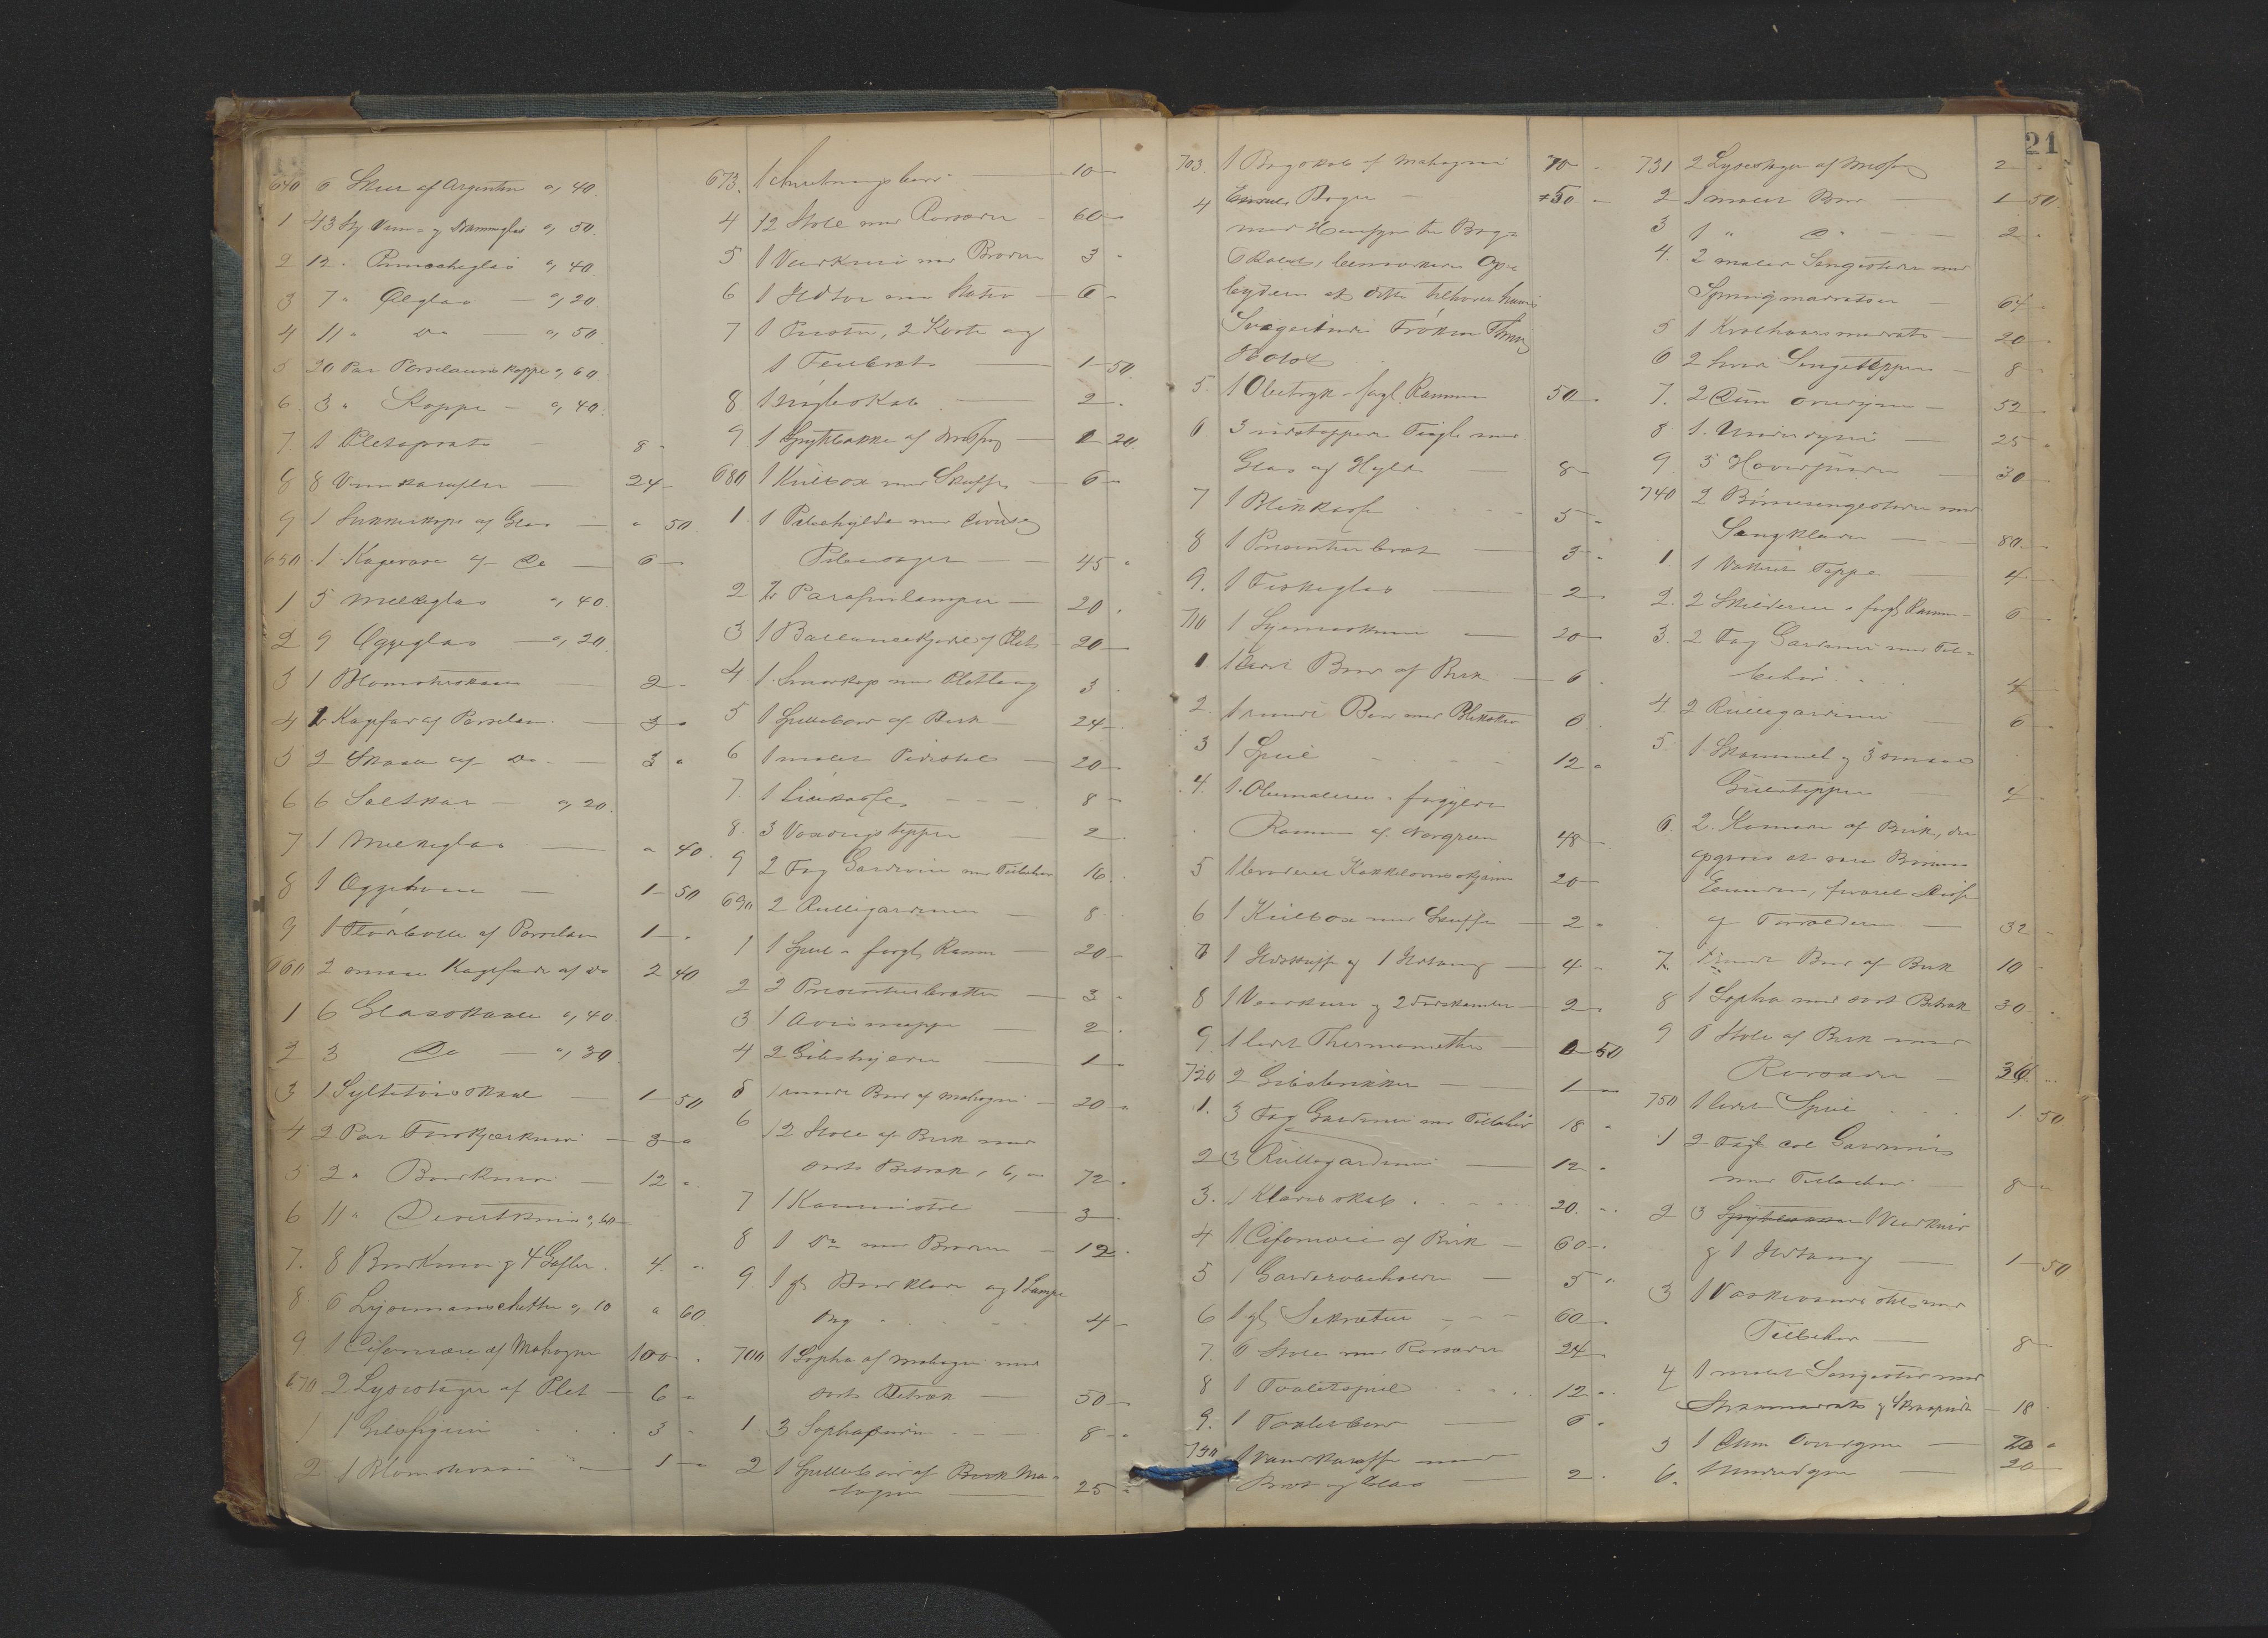 640 6 Skeer af Argentan a, 40.
1 43 St Viin- og Drammeglas a, 50.
2 12 " Puncheglas a, 40.
3 7 " Ølglas — a, 20.
4 11 " Do — a, 50.
5 20 Par Porselains Kopper a, 60
6. 3 " Kopper — a, 40.
7 1 Pletoprats — 8 -
8 8 Vinkarafler — 24 -
9 1 Sukkerkop af Glas — " 50.
650 1 Kagevase af Do — 6 —
1 5 Melkeglas a, 40.
2 9 Æggeglas — a, 20.
3 1 Blomsterskaal — 2 -
4 1 Kagefad af Porselain. — 3 "
5 2 Skaale af Do. — 3 "
6 6 Saltkar — a, 20.
7 1 Melkeglas — " 40.
8 1 Æggehøne — 1 - 50
9 1 Flødebolle af Porselain 1 — "
660 2 smaae Kagefade af Do 2 40
1 6 Glasskaale a, 40.
2 3 Do — a, 30
3 1 Syltetøiskaal — 1 — 50
4 2 Par Forskjærknive — 3 "
5 2 " Bordknive — 12 "
6 11 " Desertknive a, 60
7. 8 Bordknive og 4 Gafler. 4. "
8 6 Lysemanschetter a, 10 " 60
9. 1 Cifonniere af Mahogni 100 - "
670 2 Lysestager af Plet — 6 "
1 1 Glasfigur . . . 3 "
2 1 Blomstervase — 1 — "
673. 1 Anretningsbord — 10 —
4 12 Stole med Rørsæder — 60 —
5 1 Veerkurv med Broderi 3 "
6 1 Hdtoi med Stativ — 6 "
7 1 Puster, 2 Koste og
1 Feiebræt — 1 — 50.
8 1 Nøgleskab — 2 -
9 1 Spytbakke af Messing — 1 20.
680 1 Kulbox med Skuffe — 6 —
1. 1 Pibehylde med diverse
Pibesager — 45 "
2 2 Parafinlamper — 20.
3 1 Ballancekjede af Plet - 20 —
4 1 Smørkop med Pletlaag 3 -
5 1 Spillebord af Birk — 24 —
6 1 malet Pidestal — 20 —
7. 1 Linkasse — 8 —
8. 3 Voxdugstepper — 2
9 2 Fag Gardiner med Tilbehør 16.
690 2 Rullegardiner — 8
1 1 Speil i forgl. Ramme — 20 —
2 2 Presenteerbretter — 3 "
3 1 Avismappe — 2.
4 2 Gibshjerne — 1 —
5 1 rundt Bord af Mahogni — 20 "
6 12 Stole af Birk med
sort Betræk a 6, " 72 "
7 1 Kaminstol 3
8 1 Do med Broderi — 12.
9. 1 gl. Bordklæde og 1 Lampe
dug . . . 4 —
700 1 Sopha af Mahogni med
sort Betræk — 50 —
1. 3 Sophapuder — 8 "
2 1 Spillebord af Birk Ma-
hogni — 25 "
703 1 Bogskab af Mahogni 70 -
4 Endel Bøger — 50 —
med Hensyn til Bog-
skabet, bemærkede Op-
byderen at dette tilhører hans
Svigerinde Frøken Thina
Holst
5. 1 Olietryk i forgl. Ramme 50 -
6 3 udstoppede Fugle med
Glas og Hylde — 8 —
7 1 Blikkasse — 5 "
8 1 Presenteerbræt — 3 "
9. 1 Fiskeglas — 2 "
710 1 Symaskine — 20 —
1 1 lidet Bord af Birk — 6 -
2. 1 rundt Bord med Blikskive 6.
3 1 Speil — 12 "
4. 1 Oliemaleri i forgyldt
Ramme af Norgreen 48 —
5 1 broderet Kakkelovnsskjærm 20 —
6 1 Kulbox med Skuffe — 2 "
7 1 Ildskuffe og 1 Ildtang — 4 -
8 1 Veerkurv og 2 Fodskamler — 2 "
9. 1 lidet Thermometer — 0 50
720 2 Gibsbrikker — 1 —
1. 3 Fag Gardiner med Tilbehør 18 "
2 3 Rullegardiner — 12 "
3. 1 Klædeskab . . . 20. "
4 1 Cifonniere af Birk — 60 -
5 1 Garderobeholder — 5 "
6 1 gl. Sekretær — 60 —
7. 6 Stole med Rørsæder 24
8 1 Toiletspeil . . . 12 "
9. 1 Toiletbord — 6 "
730 1 Vandkaraffe med
Bræt og Glas 2.
21
731 2 Lysestager af Messing 2 -
2 1 malet Bord — 1 — 50
3 1 " Do — 2 "
4. 2 malede Sengesteder med
Springmatratser — 64 -
5 1 Krølhaarsmadrats — 20 -
6 2 hvide Sengetepper — 8 —
7. 2 Duun Overdyner — 52
8. 1. Underdyne — 25 "
9. 5 Hovedpuder — 30
740 2 Børnesengesteder med
Sengklæder — 80. -
1. 1 Vatteret Teppe — 4 -
2. 2 Skilderier i forgl. Ramme — 6 —
3. 2 Fag Gardiner med Til-
behør . . . 4
4. 2 Rullegardiner 6 —
5. 1 Skammel og 5 smaae
Gulvtepper — 4 —
6. 2. Komoder af Birk, der
opgives at være Børnenes
Eiendom,
af Forældrene — 32 -
7. 1 rundt Bord af Birk 10 -
8 1 Sopha med sort Betræk 30 "
9 6 Stole af Birk med
Rørsæder — 36. —
750 1 lidet Speil . . . 1 50
1 2 Fag col. Gardiner
med Tilbehør — 8 "
2 3 Spytbakker 1 Veerkurv
og 1 Ildtang — 1 — 50
3 1 Vaskevandsstol med
Tilbehør — 8 —
4 1 malet Sengested med
Straamadrats og Skraapude — 18.
5 1 Duun Overdyne — 20 "
6. Underdyne — 20 —